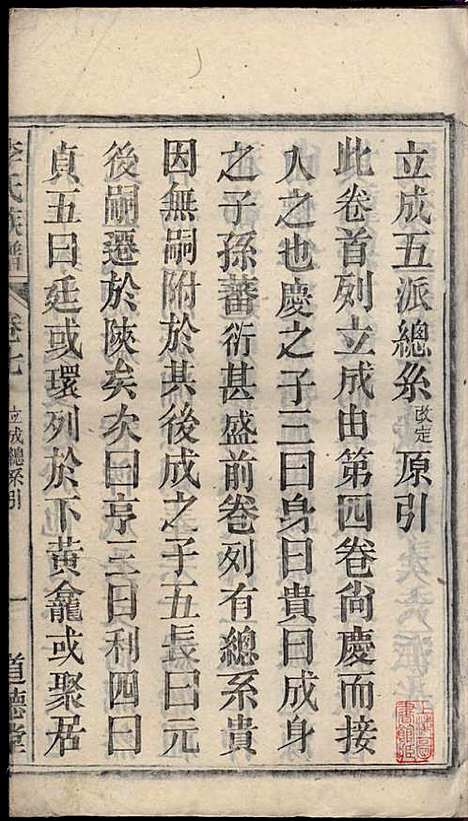 立成五派總系改定原引
此卷首列立成由第四卷尙慶而接
人之也慶之子三曰身曰貴曰成身
之子孫蕃衍甚盛前卷列有總系貴
因無嗣附於其後成之子五長曰元
後嗣遷於陝矣次曰亨三曰利四曰
貞五曰廷或環列於下黃龕或聚居
李氏族譜 卷七 立成總系引 一 道德堂